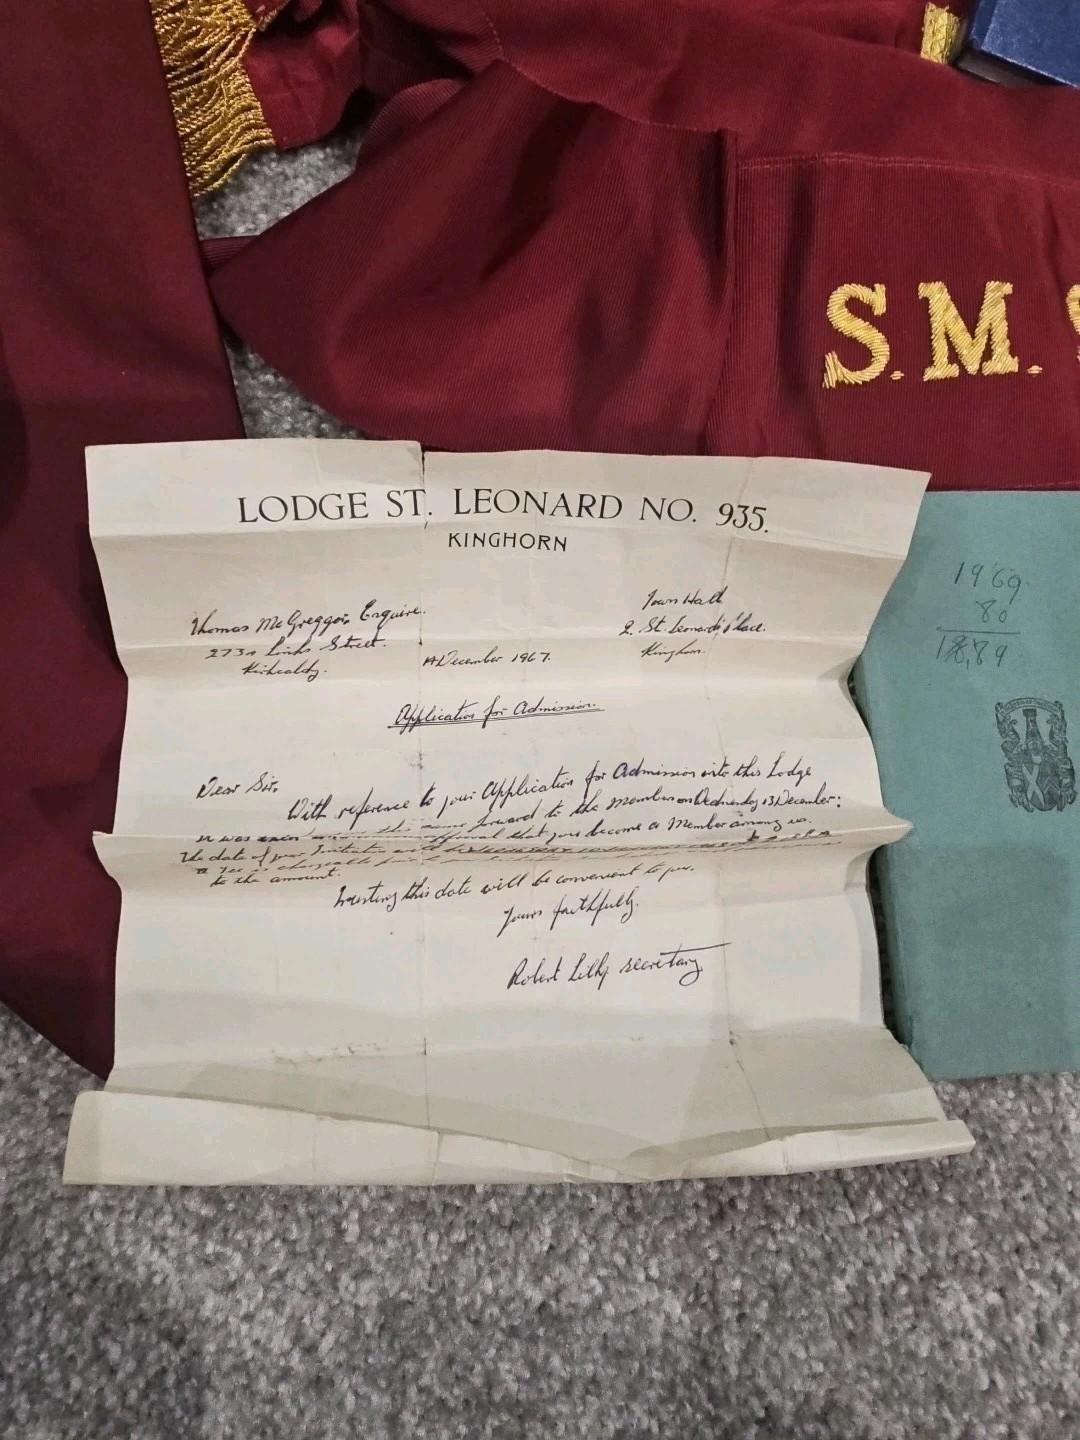 S.M.S
LODGE ST. LEONARD NO. 935.
KINGHORN
Thomas McGreggor Esquire.
273A Links Street.
Kirkcaldy.
Town Hall
2. St. Leonard's Place.
Kinghorn.
14 December 1967.
Application for Admission.
Dear Sir,
With reference to your Application for Admission into this Lodge
it was forward to the Members on Wednesday 13 December:
that you become a Member among us.
The date of your Initiation will be
a fee is chargeable
to the amount.
Trusting this date will be convenient to you.
Yours faithfully.
Robert secretary
1969
80
1889